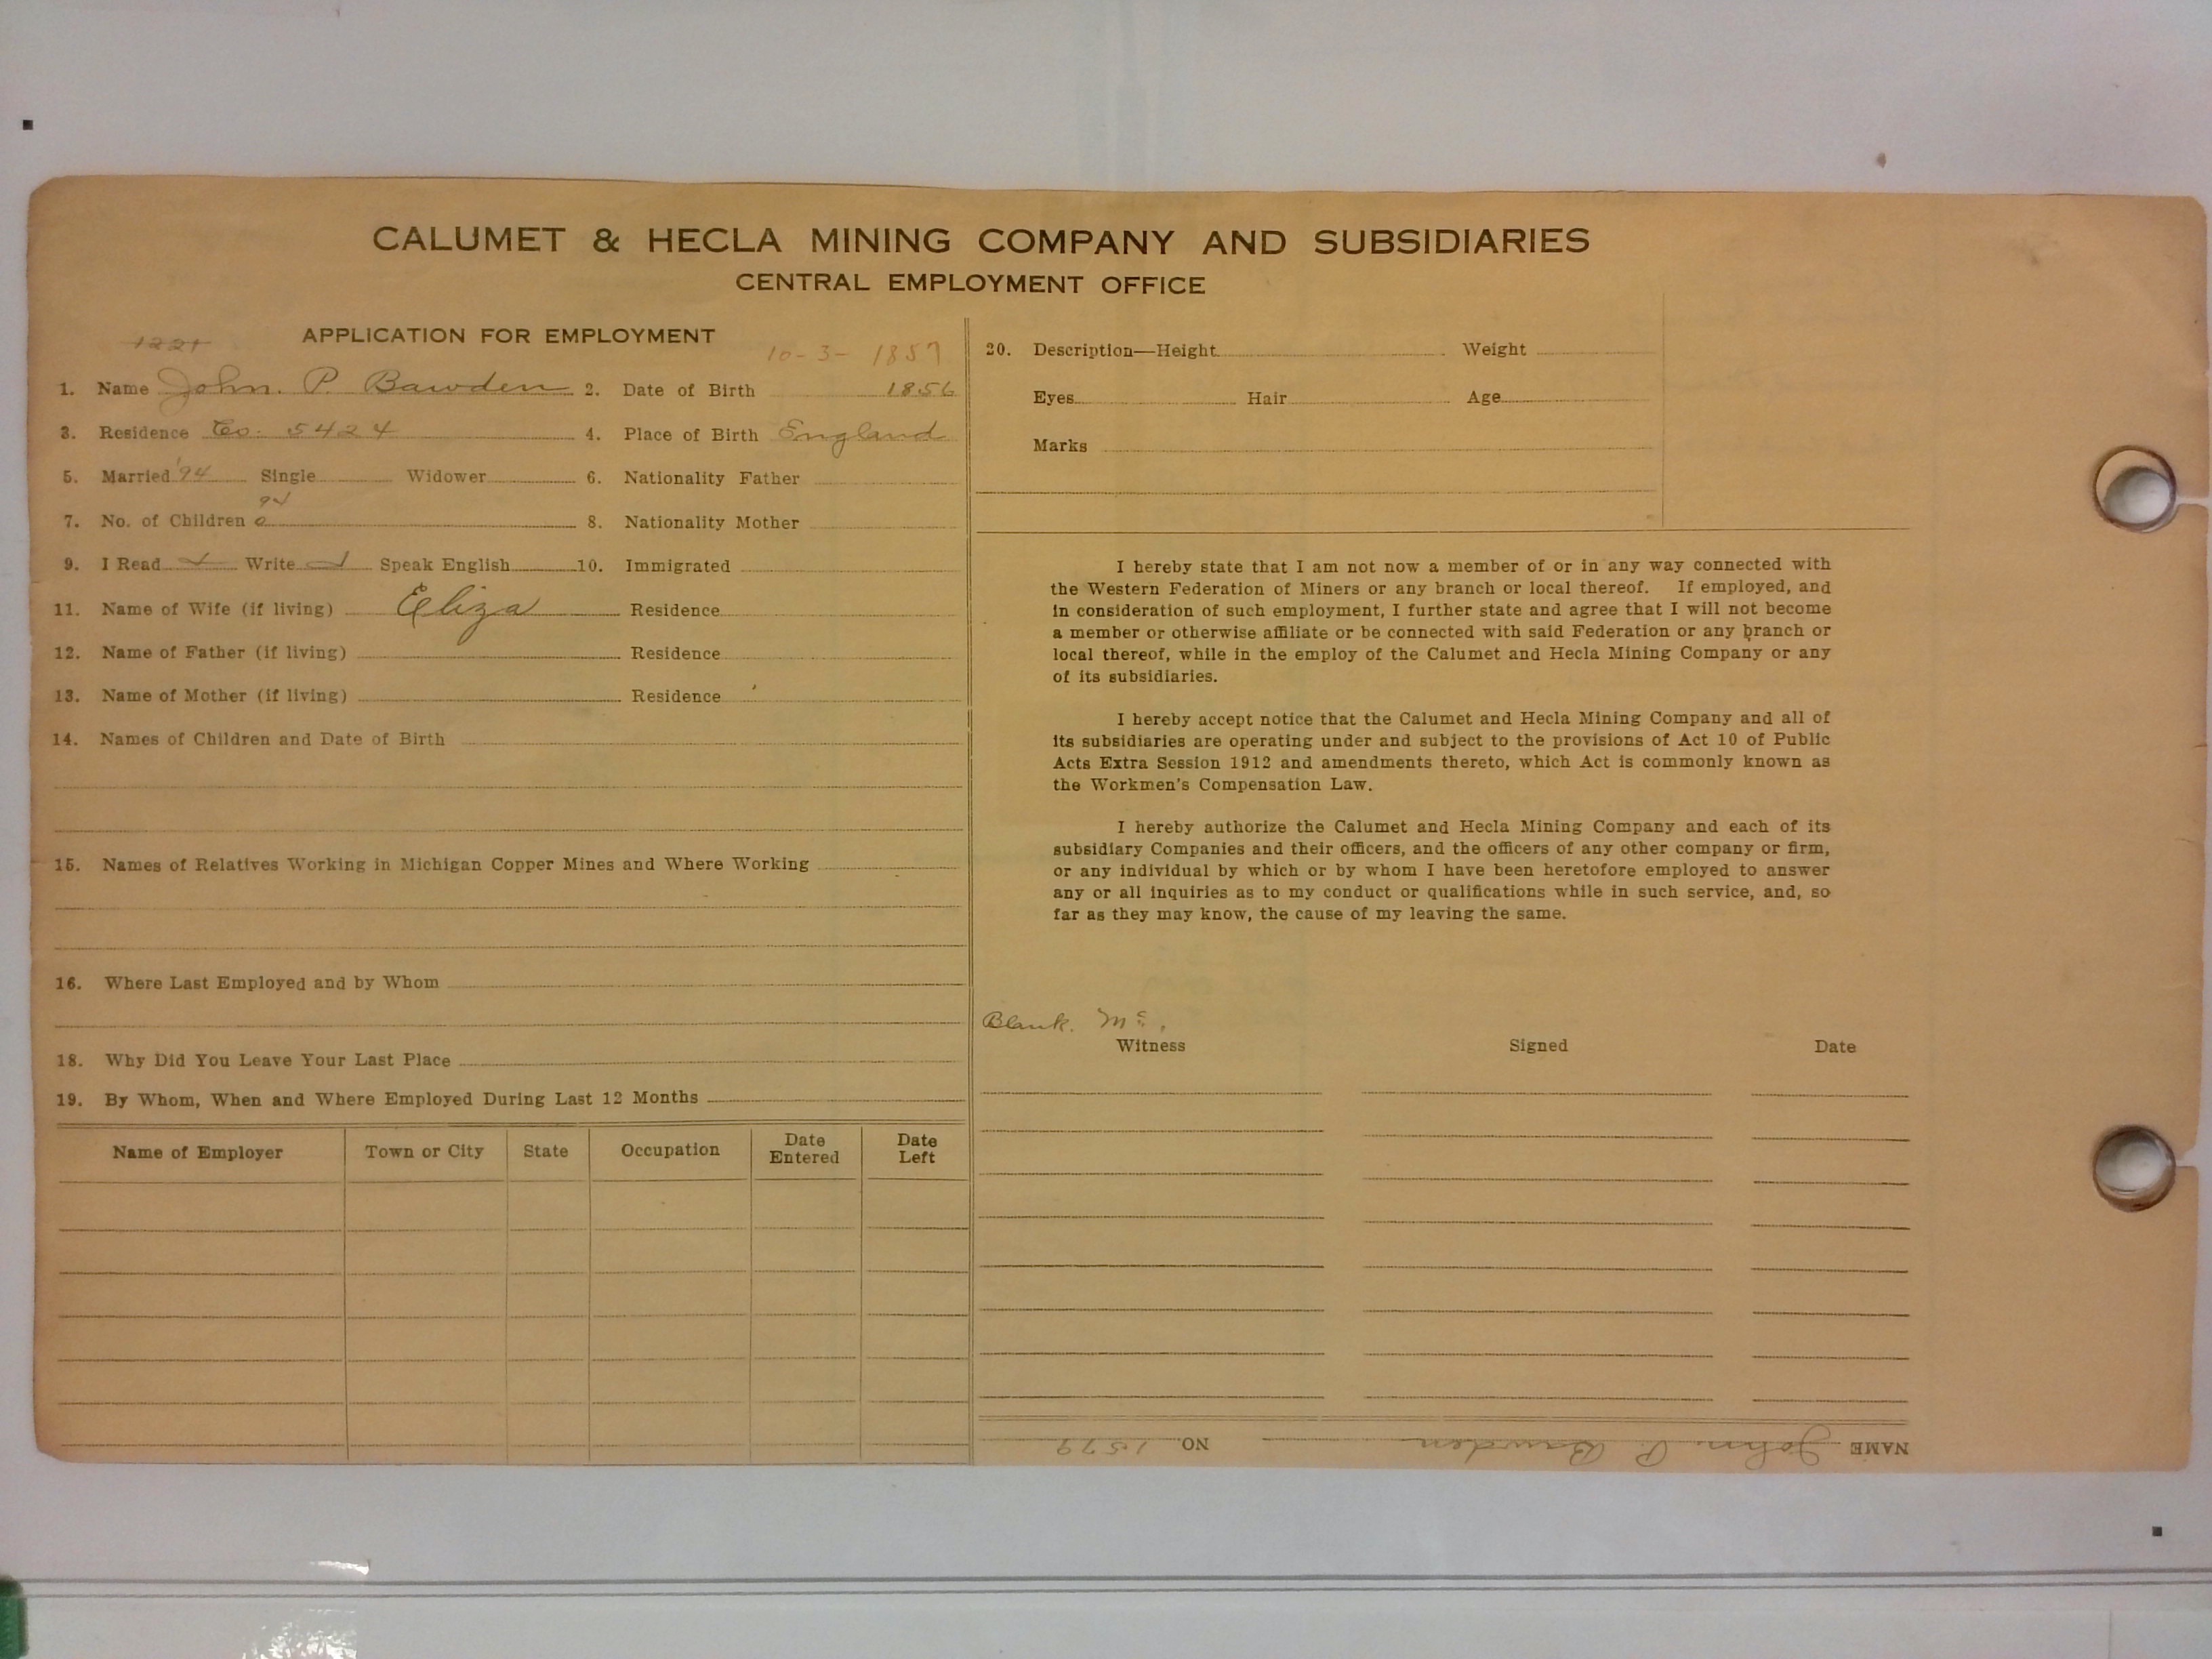 CALUMET & HECLA MINING COMPANY AND SUBSIDIARIES
CENTRAL EMPLOYMENT OFFICE
1221 APPLICATION FOR EMPLOYMENT
10-3-1857
1. Name John. P. Bawden 2. Date of Birth 1856
3. Residence Co. 5424 4. Place of Birth England
5. Married '94 Single Widower 6. Nationality Father
94
7. No. of Children 0 8. Nationality Mother
9. I Read ✓ Write ✓ Speak English 10. Immigrated
11. Name of Wife (if living) Eliza Residence
12. Name of Father (if living) Residence
13. Name of Mother (if living) Residence
14. Names of Children and Date of Birth
15. Names of Relatives Working in Michigan Copper Mines and Where Working
16. Where Last Employed and by Whom
18. Why Did You Leave Your Last Place
19. By Whom, When and Where Employed During Last 12 Months
Name of Employer Town or City State Occupation Date Entered Date Left
20. Description—Height Weight
Eyes Hair Age
Marks
I hereby state that I am not now a member of or in any way connected with
the Western Federation of Miners or any branch or local thereof. If employed, and
in consideration of such employment, I further state and agree that I will not become
a member or otherwise affiliate or be connected with said Federation or any branch or
local thereof, while in the employ of the Calumet and Hecla Mining Company or any
of its subsidiaries.
I hereby accept notice that the Calumet and Hecla Mining Company and all of
its subsidiaries are operating under and subject to the provisions of Act 10 of Public
Acts Extra Session 1912 and amendments thereto, which Act is commonly known as
the Workmen's Compensation Law.
I hereby authorize the Calumet and Hecla Mining Company and each of its
subsidiary Companies and their officers, and the officers of any other company or firm,
or any individual by which or by whom I have been heretofore employed to answer
any or all inquiries as to my conduct or qualifications while in such service, and, so
far as they may know, the cause of my leaving the same.
Blank. Mc.
Witness Signed Date
NAME John. P. Bawden NO. 1579